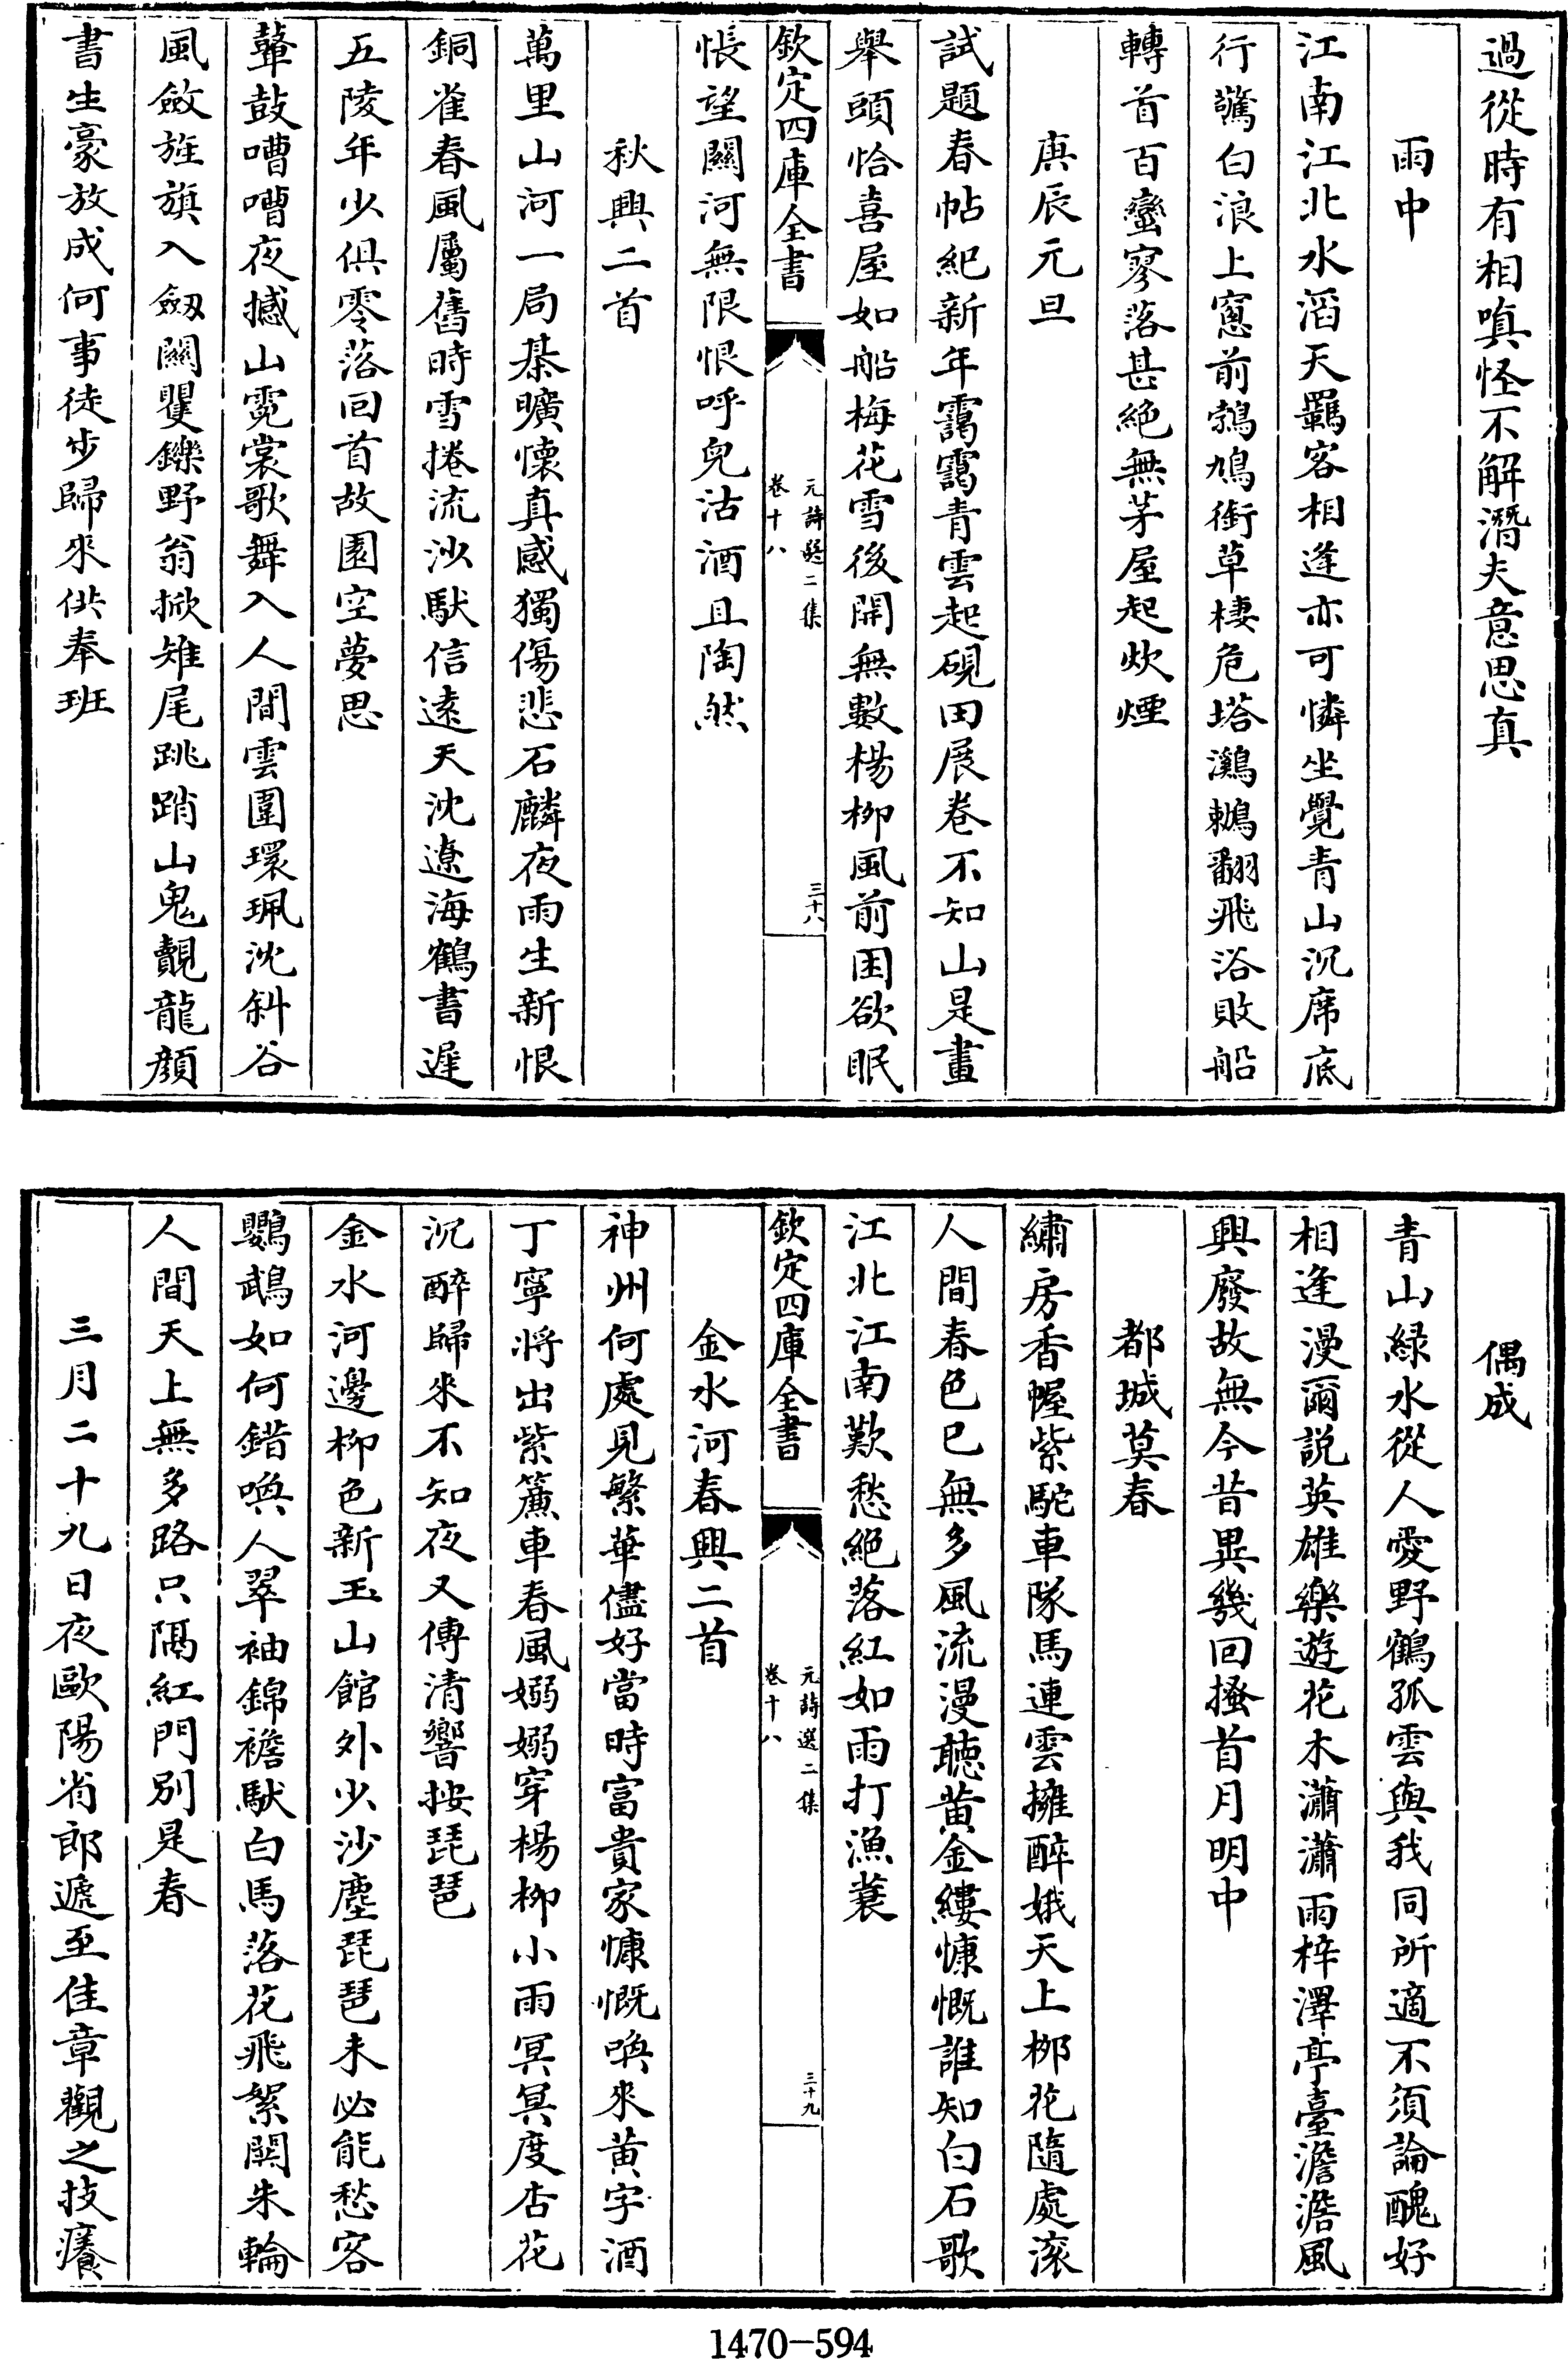 過從時有相嗔怪不解潛夫意思真
雨中
江南江北水滔天羈客相逢亦可憐坐覺青山沉席底
行驚白浪上窻前鵓鳩銜草棲危塔鸂鶒翻飛浴敗船
轉首百蠻寥落甚絕無茅屋起炊煙
庚辰元旦
試題春帖紀新年靄靄青雲起硯田展卷不知山是畫
舉頭恰喜屋如船梅花雪後開無數楊柳風前困欲眠
欽定四庫全書
元詩選二集
卷十八
三十八
悵望關河無限恨呼兒沽酒且陶然
秋興二首
萬里山河一局棊曠懷真感獨傷悲石麟夜雨生新恨
銅雀春風屬舊時雪捲流沙馱信遠天沈遼海鶴書遲
五陵年少俱零落回首故園空夢思
鼙鼓嘈嘈夜撼山霓裳歌舞入人間雲圍環珮沈斜谷
風斂旌旗入劔關矍鑠野翁掀雉尾跳踃山鬼覿龍顏
書生豪放成何事徒步歸來供奉班
偶成
青山緑水從人愛野鶴孤雲與我同所適不須論醜好
相逢漫爾説英雄樂遊花木瀟瀟雨梓澤亭臺澹澹風
興廢故無今昔異幾回搔首月明中
都城莫春
繡房香幄紫駝車隊馬連雲擁醉娥天上栁花隨處滚
人間春色已無多風流漫聴黄金縷慷慨誰知白石歌
江北江南歎愁絕落紅如雨打漁蓑
欽定四庫全書
元詩選二集
卷十八
三十九
金水河春興二首
神州何處見繁華儘好當時富貴家慷慨喚來黄字酒
丁寧將出紫簾車春風嫋嫋穿楊柳小雨冥冥度杏花
沉醉歸來不知夜又傳清響按琵琶
金水河邊柳色新玉山館外少沙塵琵琶未必能愁客
鸚鵡如何錯喚人翠袖錦襜馱白馬落花飛絮閧朱輪
人間天上無多路只隔紅門别是春
三月二十九日夜歐陽省郎遞至佳章觀之技癢
1470-594